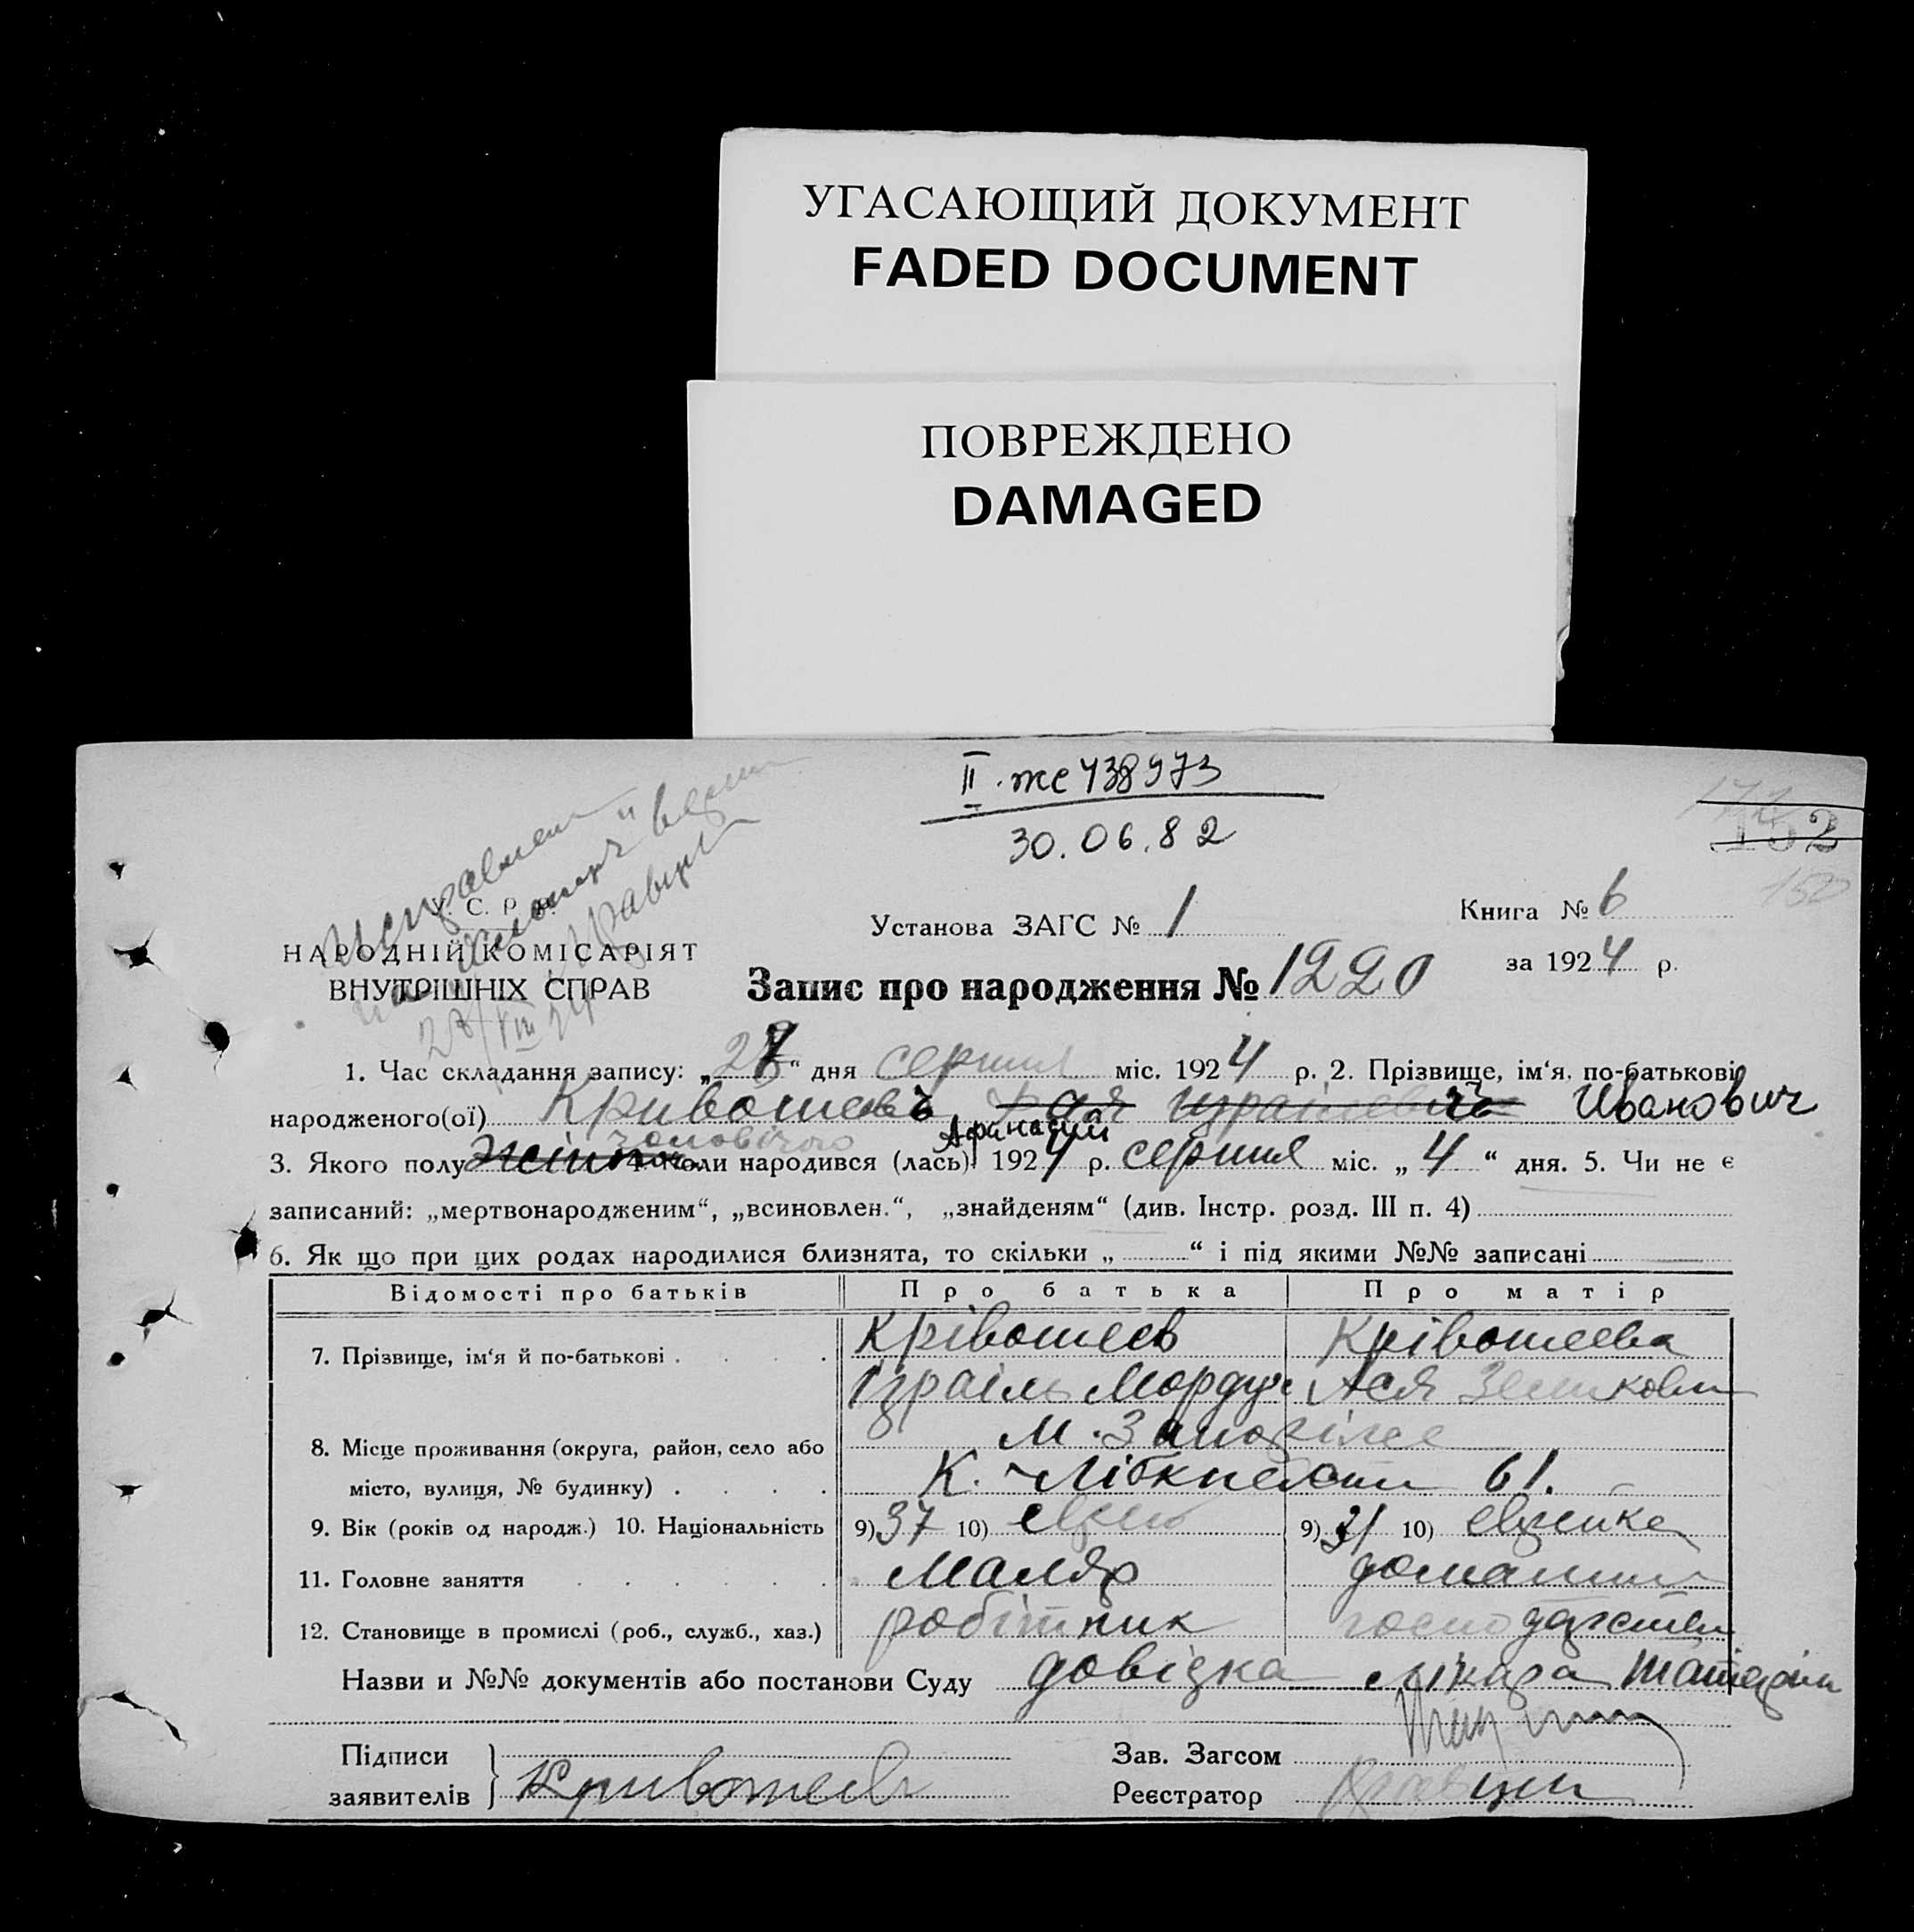 УГАСАЮЩИЙ ДОКУМЕНТ
FADED DOCUMENT
ПОВРЕЖДЕНО
DAMAGED
II. же 438973
30.06.82
152
У. С. Р. Р.
НАРОДНІЙ КОМІСАРІЯТ
ВНУТРІШНІХ СПРАВ
Установа ЗАГС № 1
Книга № 6
за 1924 р.
Запис про народження № 1220
1. Час складання запису: „27“ дня серпня міс. 1924 р. 2. Прізвище, ім‘я, по-батькові
народженого(ої) Кривошеевъ Рая Ізраілевич Иванович
Афанасий
чоловічого
3. Якого полу жіноч. 4. Коли народився (лась) 1924 р. серпня міс. „4“ дня. 5. Чи не є
записаний: „мертвонародженим“, „всиновлен.“, „знайденям“ (див. Інстр. розд. III п. 4)
6. Як що при цих родах народилися близнята, то скільки „ “ і під якими №№ записані
Відомості про батьків Про батька Про матір
7. Прізвище, ім‘я й по-батькові Крівошеев Крівошеева
Ізраіль Мордух Ася
8. Місце проживання (округа, район, село або м. Запоріжє
місто, вулиця, № будинку) К. Лібкнехта 61.
9. Вік (років од народж.) 10. Національність 9) 37 10) еврей 9) 31 10) еврейка
11. Головне заняття Маляр домашнє
12. Становище в промислі (роб., служб., хаз.) робітник господарство
Назви и №№ документів або постанови Суду довідка лікаря
Підписи
заявителів Кривошеев
Зав. Загсом
Реєстратор